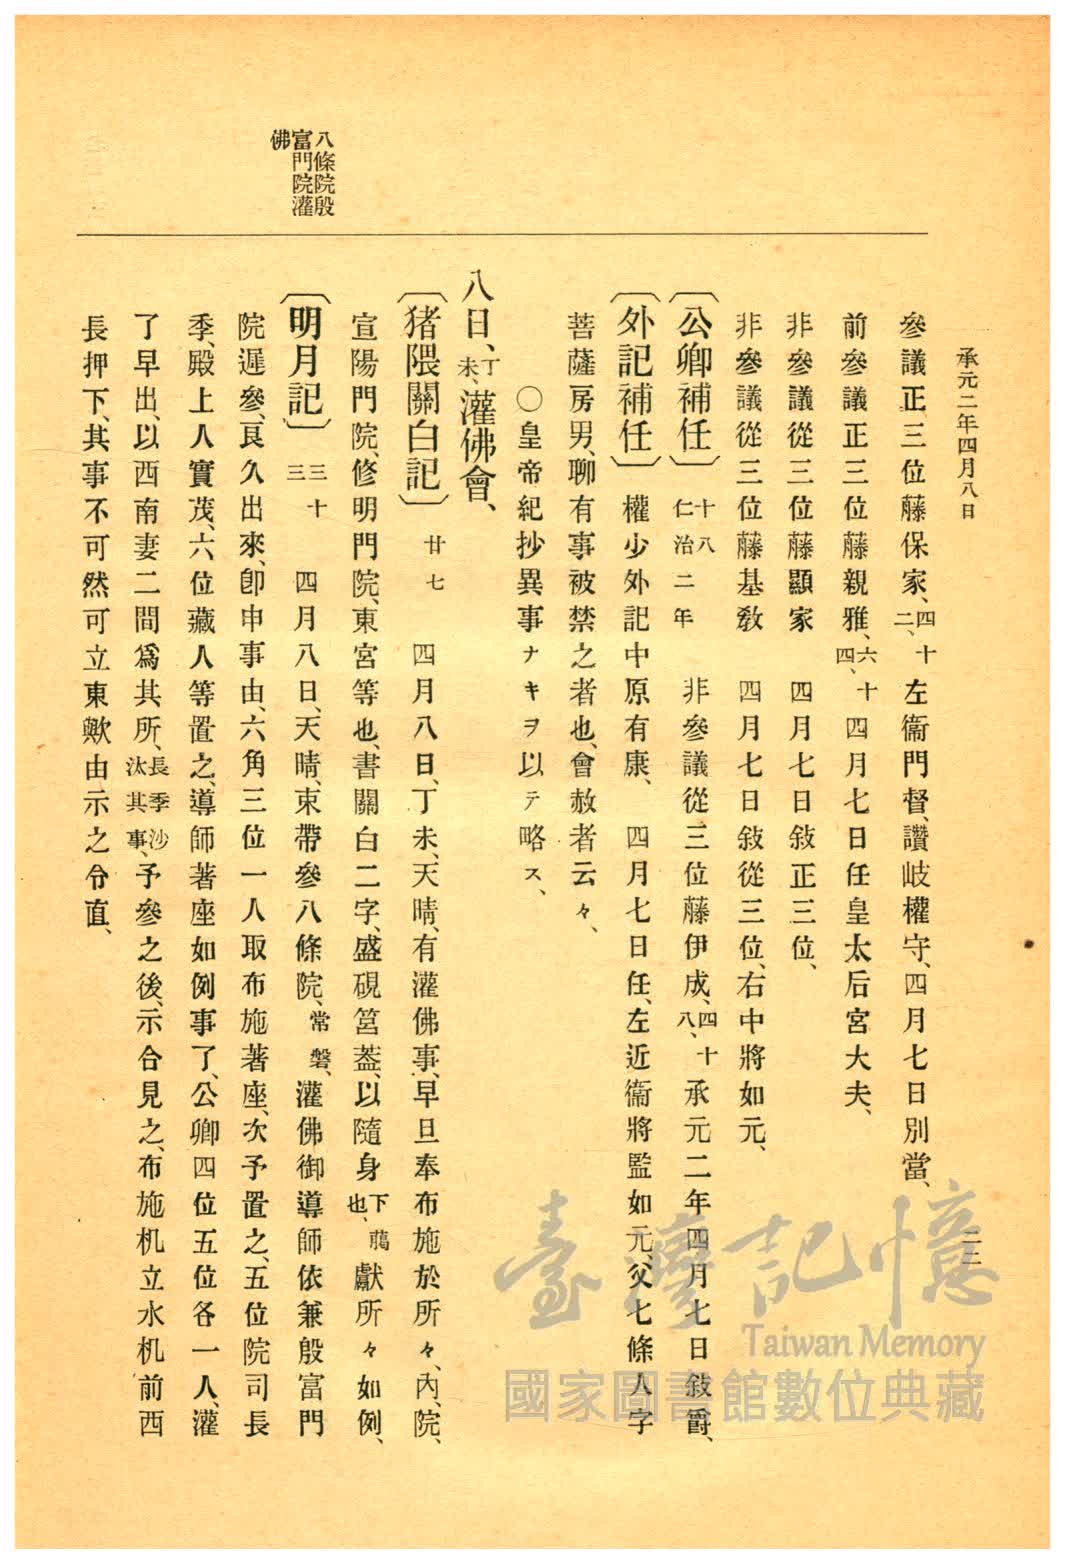 承元二年四月八日
二二
參議正三位藤保家、四十二、左衞門督、讚岐權守、四月七日別當、
前參議正三位藤親雅、六十四、四月七日任皇太后宮大夫、
非參議從三位藤顯家　四月七日敍正三位、
非參議從三位藤基敎　四月七日敍從三位、右中將如元、
〔公卿補任〕十八 仁治二年　非參議從三位藤伊成、四十八、承元二年四月七日敍爵、
〔外記補任〕權少外記中原有康、　四月七日任、左近衞將監如元、父七條人字
菩薩房男、聊有事被禁之者也、會赦者云々、
〇皇帝紀抄異事ナキヲ以テ略ス、
八日、丁未、灌佛會、
〔猪隈關白記〕廿七　四月八日、丁未、天晴、有灌佛事、早旦奉布施於所々、內、院、
宣陽門院、修明門院、東宮等也、書關白二字、盛硯筥葢、以隨身下﨟也、獻所々如例、
〔明月記〕三十三　四月八日、天晴、束帶參八條院、常磐、灌佛御導師依兼殷富門
院遲參、良久出來、卽申事由、六角三位一人取布施著座、次予置之、五位院司長
季、殿上人實茂、六位藏人等置之、導師著座如例事了、公卿四位五位各一人、灌
了早出、以西南妻二間爲其所、長季沙汰其事、予參之後、示合見之、布施机立水机前西
長押下、其事不可然可立東歟由示之令直、
八條院殷
富門院灌
佛
臺灣記憶
Taiwan Memory
國家圖書館數位典藏